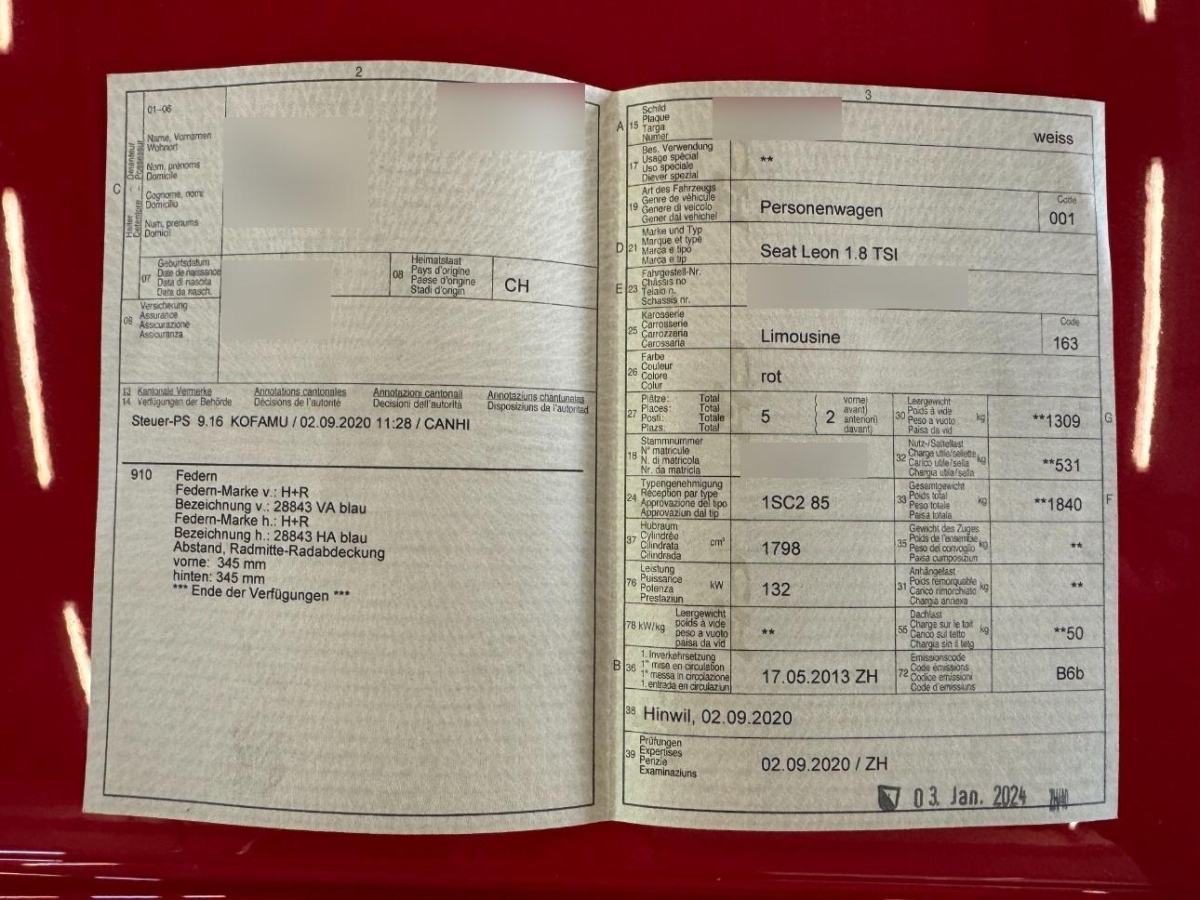 2
01-06
C
Halter
Détenteur
Detentore
Possessur
Name, Vornamen
Wohnort
Nom, prénoms
Domicile
Cognome, nomi
Domicilio
Num, prenums
Domicil
07
Geburtsdatum
Date de naissance
Data di nascita
Data da nasch.
08
Heimatstaat
Pays d'origine
Paese d'origine
Stadi d'origin
CH
09
Versicherung
Assurance
Assicurazione
Assicuranza
13 Kantonale Vermerke Annotations cantonales Annotazioni cantonali Annotaziuns chantunalas
14 Verfügungen der Behörde Décisions de l'autorité Decisioni dell'autorità Disposiziuns de l'autoritad
Steuer-PS 9.16 KOFAMU / 02.09.2020 11:28 / CANHI
910 Federn
Federn-Marke v.: H+R
Bezeichnung v.: 28843 VA blau
Federn-Marke h.: H+R
Bezeichnung h.: 28843 HA blau
Abstand, Radmitte-Radabdeckung
vorne: 345 mm
hinten: 345 mm
*** Ende der Verfügungen ***
3
A 15
Schild
Plaque
Targa
Numer
weiss
17
Bes. Verwendung
Usage spécial
Uso speciale
Diever spezial
**
19
Art des Fahrzeugs
Genre de véhicule
Genere di veicolo
Gener dal vehichel
Personenwagen
Code
001
D 21
Marke und Typ
Marque et type
Marca e tipo
Marca e tip
Seat Leon 1.8 TSI
E 23
Fahrgestell-Nr.
Châssis no
Telaio n.
Schassis nr.
25
Karosserie
Carrosserie
Carrozzeria
Carossaria
Limousine
Code
163
26
Farbe
Couleur
Colore
Colur
rot
27
Plätze: Total
Places: Total
Posti: Totale
Plazs: Total
5
2
vorne)
avant)
anteriori)
davant)
30
Leergewicht
Poids à vide
Peso a vuoto
Paisa da vid
kg
**1309
G
18
Stammnummer
N° matricule
N. di matricola
Nr. da matricla
32
Nutz-/Sattellast
Charge utile/sellette
Carico utile/sella
Chargia utila/sella
kg
**531
24
Typengenehmigung
Réception par type
Approvazione del tipo
Approvaziun dal tip
1SC2 85
33
Gesamtgewicht
Poids total
Peso totale
Paisa totala
kg
**1840
F
37
Hubraum
Cylindrée
Cilindrata
Cilindrada
cm³
1798
35
Gewicht des Zuges
Poids de l'ensemble
Peso del convoglio
Paisa cumposiziun
kg
**
76
Leistung
Puissance
Potenza
Prestaziun
kW
132
31
Anhängelast
Poids remorquable
Carico rimorchiato
Chargia annexa
kg
**
78 kW/kg
Leergewicht
poids à vide
peso a vuoto
paisa da vid
**
55
Dachlast
Charge sur le toit
Carico sul tetto
Chargia sin il tetg
kg
**50
B 36
1. Inverkehrsetzung
1re mise en circulation
1a messa in circolazione
1. entrada en circulaziun
17.05.2013 ZH
72
Emissionscode
Code émissions
Codice emissioni
Code d'emissiuns
B6b
38
Hinwil, 02.09.2020
39
Prüfungen
Expertises
Perizie
Examinaziuns
02.09.2020 / ZH
03. Jan. 2024